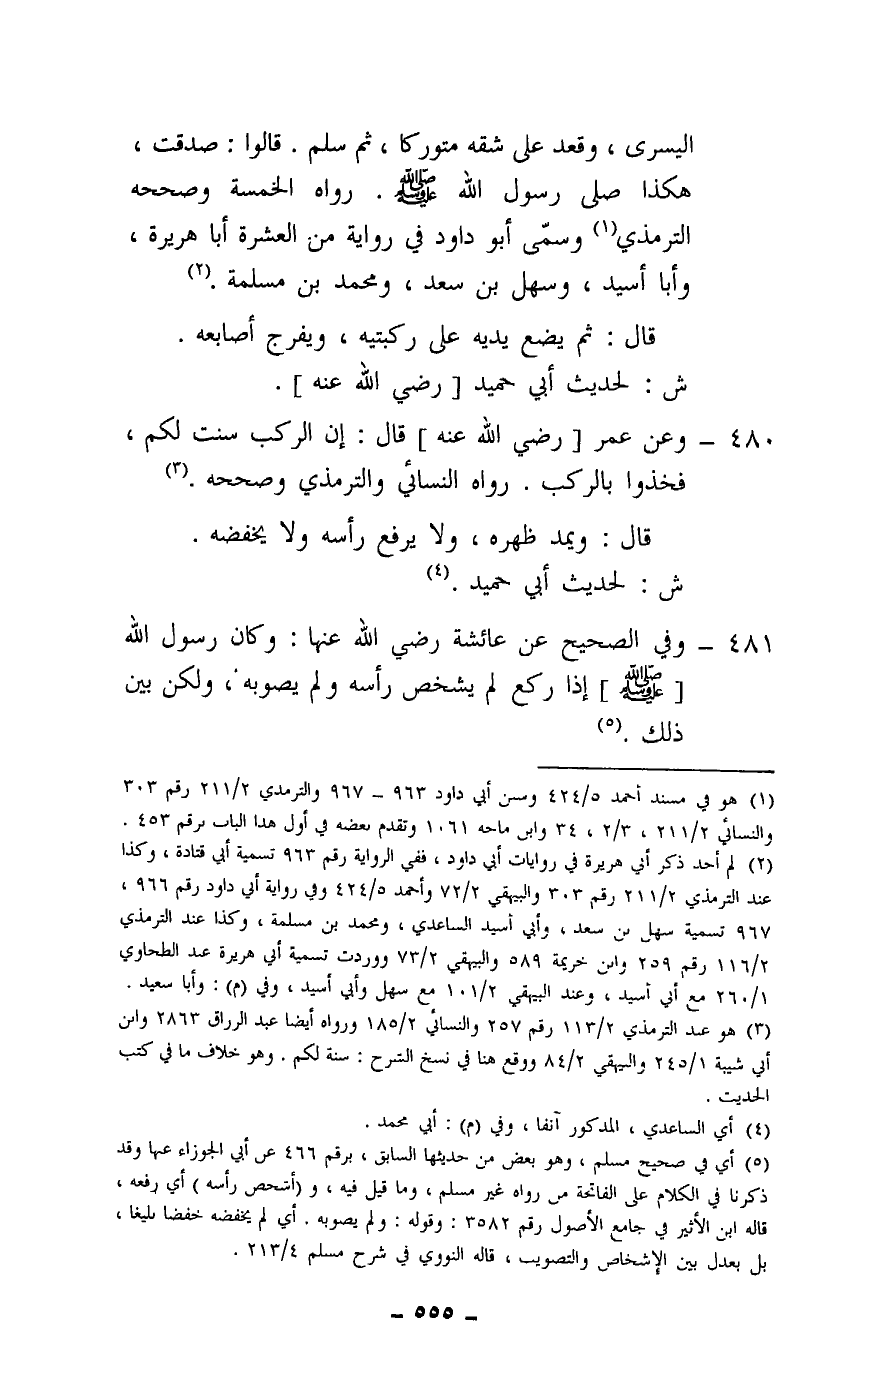 اليسرى ، وقعد على شقه متوركا ، ثم سلم . قالوا : صدقت ،
هكذا صلى رسول الله ﷺ . رواه الخمسة وصححه
الترمذي(١) وسمّى أبو داود في رواية من العشرة أبا هريرة ،
وأبا أسيد ، وسهل بن سعد ، ومحمد بن مسلمة .(٢)
قال : ثم يضع يديه على ركبتيه ، ويفرج أصابعه .
ش : لحديث أبي حميد [ رضي الله عنه ] .
٤٨٠ – وعن عمر [ رضي الله عنه ] قال : إن الركب سنت لكم ،
فخذوا بالركب . رواه النسائي والترمذي وصححه .(٣)
قال : ويمد ظهره ، ولا يرفع رأسه ولا يخفضه .
ش : لحديث أبي حميد .(٤)
٤٨١ – وفي الصحيح عن عائشة رضي الله عنها : وكان رسول الله
[ ﷺ ] إذا ركع لم يشخص رأسه ولم يصوبه ، ولكن بين
ذلك .(٥)
(١) هو في مسند أحمد ٤٢٤/٥ وسنن أبي داود ٩٦٣ – ٩٦٧ والترمذي ٢١١/٢ رقم ٣٠٣
والنسائي ٢١١/٢ ، ٢/٣ ، ٣٤ وابن ماجه ١٠٦١ وتقدم بعضه في أول هذا الباب برقم ٤٥٣ .
(٢) لم أجد ذكر أبي هريرة في روايات أبي داود ، ففي الرواية رقم ٩٦٣ تسمية أبي قتادة ، وكذا
عند الترمذي ٢١١/٢ رقم ٣٠٣ والبيهقي ٧٢/٢ وأحمد ٤٢٤/٥ وفي رواية أبي داود رقم ٩٦٦ ،
٩٦٧ تسمية سهل بن سعد ، وأبي أسيد الساعدي ، ومحمد بن مسلمة ، وكذا عند الترمذي
١١٦/٢ رقم ٢٥٩ وابن خزيمة ٥٨٩ والبيهقي ٧٣/٢ ووردت تسمية أبي هريرة عند الطحاوي
٢٦٠/١ مع أبي أسيد ، وعند البيهقي ١٠١/٢ مع سهل وأبي أسيد ، وفي (م) : وأبا سعيد .
(٣) هو عند الترمذي ١١٣/٢ رقم ٢٥٧ والنسائي ١٨٥/٢ ورواه أيضا عبد الرزاق ٢٨٦٣ وابن
أبي شيبة ٢٤٥/١ والبيهقي ٨٤/٢ ووقع هنا في نسخ الشرح : سنة لكم . وهو خلاف ما في كتب
الحديث .
(٤) أي الساعدي ، المذكور آنفا ، وفي (م) : أبي محمد .
(٥) أي في صحيح مسلم ، وهو بعض من حديثها السابق ، برقم ٤٦٦ عن أبي الجوزاء عنها وقد
ذكرنا في الكلام على الفاتحة من رواه غير مسلم ، وما قيل فيه ، و (أشخص رأسه ) أي رفعه ،
قاله ابن الأثير في جامع الأصول رقم ٣٥٨٢ : وقوله : ولم يصوبه . أي لم يخفضه خفضا بليغا ،
بل يعدل بين الإشخاص والتصويب ، قاله النووي في شرح مسلم ٢١٣/٤ .
– ٥٥٥ –